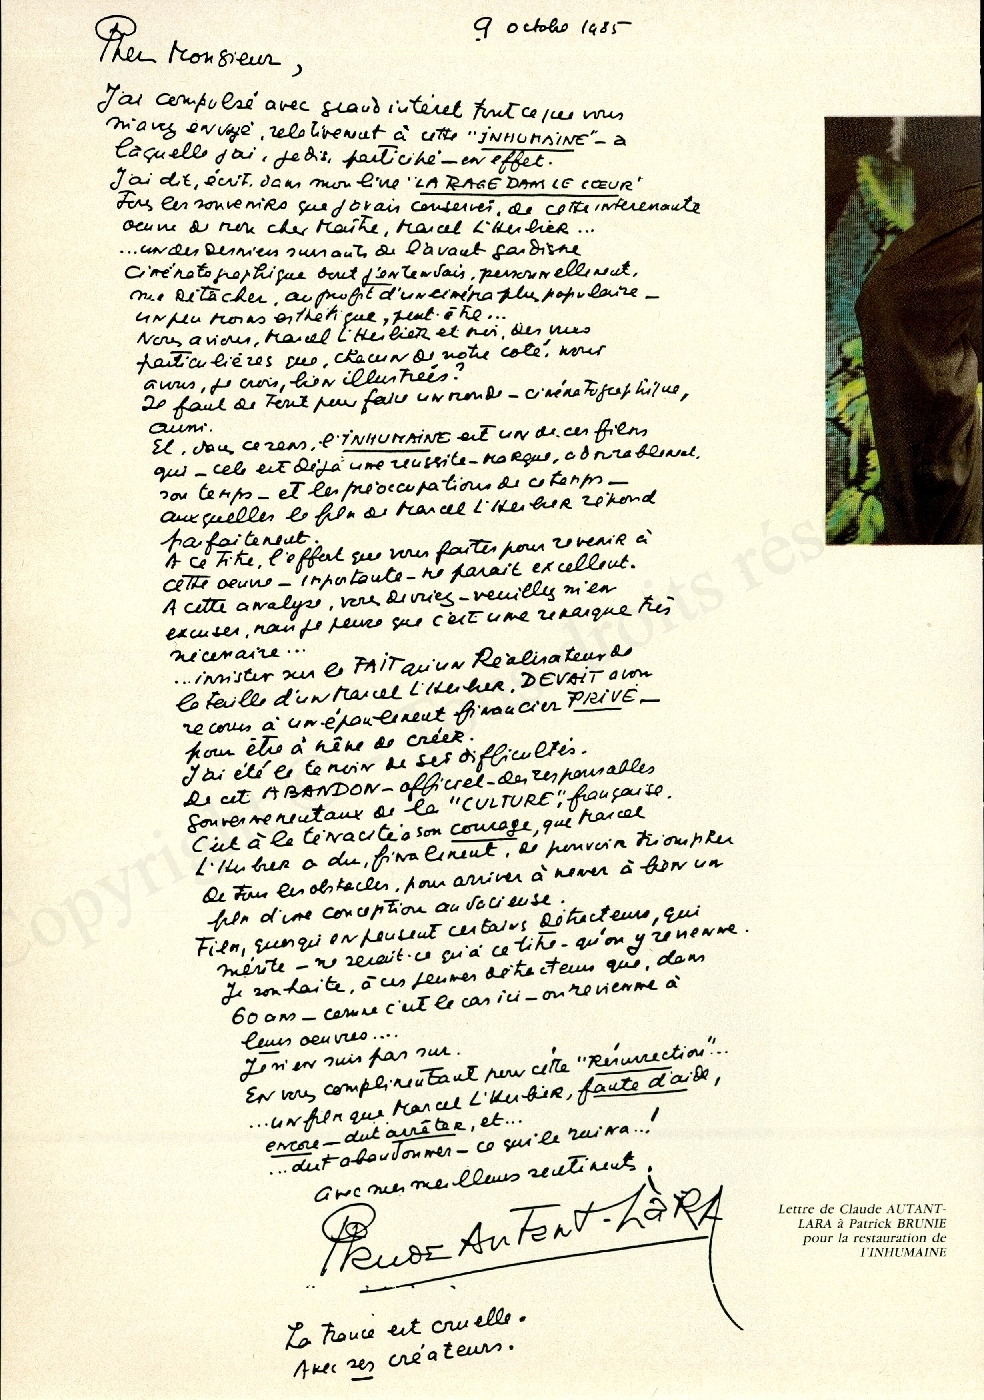 9 octobre 1985
Cher Monsieur,
J'ai compulsé avec grand intérêt tout ce que vous
m'avez envoyé, relativement à cette "INHUMAINE" – à
laquelle j'ai, jadis, participé – en effet.
J'ai dit, écrit, dans mon livre "LA RAGE DANS LE CŒUR"
Tous les souvenirs que j'avais conservés, de cette intéressante
oeuvre de mon cher Maître, Marcel L'Herbier...
...un des derniers sursauts de l'avant gardisme
Cinématographique dont j'entendais, personnellement,
me détacher, au profit d'un cinéma plus populaire –
un peu moins esthétique, peut-être...
Nous avions, Marcel L'Herbier et moi, des vues
particulières que, chacun de notre coté, nous
avons, je crois, bien illustrées?
Il faut de tout pour faire un monde – cinématographique,
aussi.
Et, dans ce sens, l'INHUMAINE est un de ces films
qui – cela est déjà une réussite – marque, admirablement,
son temps – et les préoccupations de ce temps –
auxquelles le film de Marcel L'Herbier répond
parfaitement.
A ce titre, l'effort que vous faites pour revenir à
cette oeuvre – importante – me parait excellent.
A cette analyse, vous devriez – veuillez m'en
excuser, mais je pense que c'est une remarque très
nécessaire...
...insister sur le FAIT qu'un Réalisateur de
la taille d'un Marcel L'Herbier, DEVAIT avoir
recours à un épaulement financier PRIVÉ –
pour être à même de créer.
J'ai été le témoin de ses difficultés.
De cet ABANDON – officiel – des responsables
gouvernementaux de la "CULTURE", française.
C'est à la ténacité à son courage, que Marcel
L'Herbier a du, finalement, de pouvoir triompher
de tous les obstacles, pour arriver à mener à bien un
film d'une conception audacieuse.
Film, quoiqu'en pensent certains Détracteurs, qui
mérite – ne serait-ce qu'à ce titre – qu'on y revienne.
Je souhaite, à ces jeunes détracteurs que, dans
60 ans – comme c'est le cas ici – on revienne à
leurs oeuvres....
Je n'en suis pas sur.
En vous complimentant pour cette "Résurrection"...
...un film que Marcel L'Herbier, faute d'aide,
encore – dut arrêter, et...
...dut abandonner – ce qui le ruina...!
avec mes meilleurs sentiments.
Claude Autant-Lara
La France est cruelle.
Avec ses créateurs.
Lettre de Claude AUTANT-
LARA à Patrick BRUNIE
pour la restauration de
l'INHUMAINE